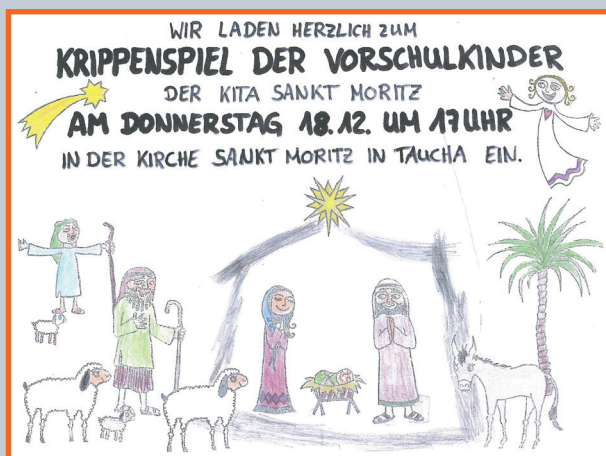 WIR LADEN HERZLICH ZUM
KRIPPENSPIEL DER VORSCHULKINDER
DER KITA SANKT MORITZ
AM DONNERSTAG 18.12. UM 17 UHR
IN DER KIRCHE SANKT MORITZ IN TAUCHA EIN.